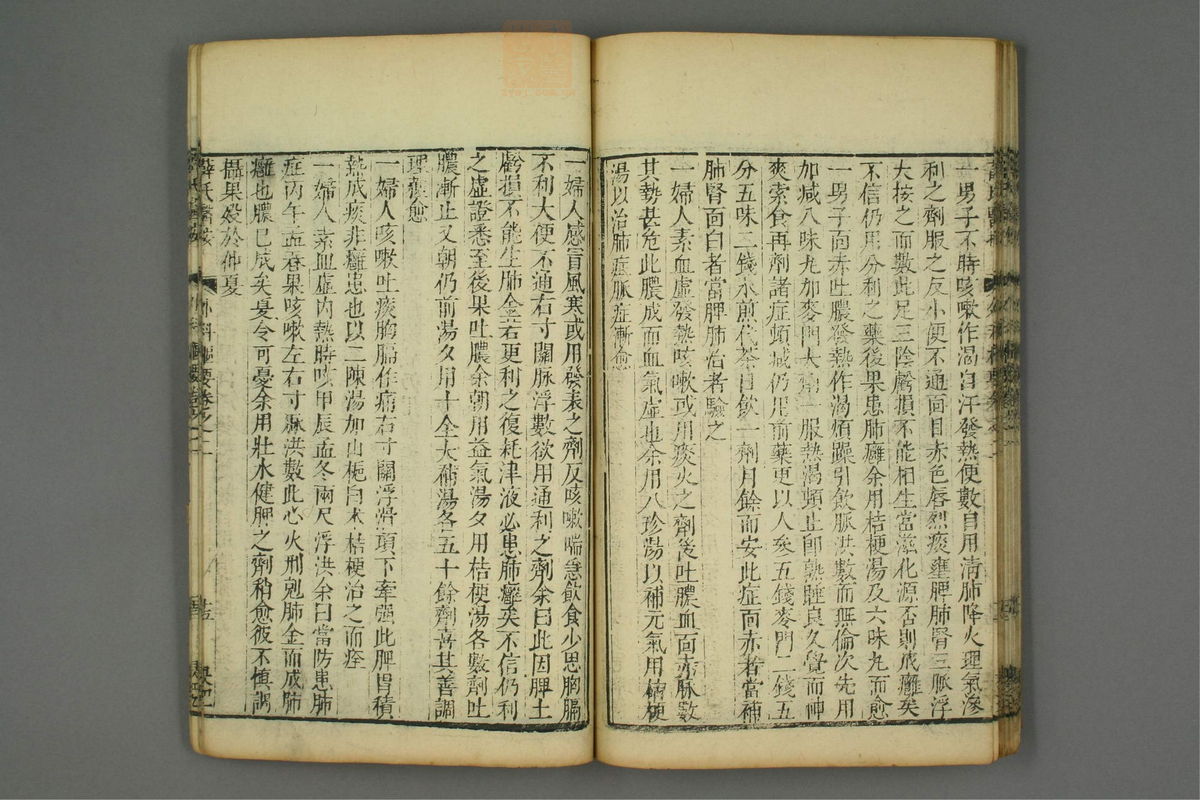 一男子不時咳嗽作渴自汗發熱便數自用清肺降火理氣滲
利之劑服之反小便不通面目赤色唇烈痰壅脾肺腎三脈浮
大按之而數此足三陰虧損不能相生當滋化源否則成癰矣
不信仍用分利之藥後果患肺癰余用桔梗湯及六味丸而愈
一男子面赤吐膿發熱作渴煩躁引飲脈洪數而無倫次先用
加減八味丸加麥門大劑一服熱渴頓止即熟睡良久覺而神
爽索食再劑諸症頓減仍用前藥更以人參五錢麥門二錢五
分五味二錢水煎代茶日飲一劑月餘而安此症面赤者當補
肺腎面白者當脾肺治者驗之
一婦人素血虛發熱咳嗽或用痰火之劑後吐膿血面赤脈數
其勢甚危此膿成而血氣虛也余用八珍湯以補元氣用桔梗
湯以治肺症脈症漸愈
一婦人感冒風寒或用發表之劑反咳嗽喘急飲食少思胸膈
不利大便不通右寸關脈浮數欲用通利之劑余曰此因脾土
虧損不能生肺金若更利之復耗津液必患肺癰矣不信仍利
之虛證悉至後果吐膿余朝用益氣湯夕用桔梗湯各數劑吐
膿漸止又朝仍前湯夕用十全大補湯各五十餘劑喜其善調
理獲愈
一婦人咳嗽吐痰胸膈作痛右寸關浮滑項下牽强此脾胃積
熱成痰非癰患也以二陳湯加山梔白朮桔梗治之而痊
一婦人素血虛內熱時咳甲辰孟冬兩尺浮洪余曰當防患肺
症丙午孟春果咳嗽左右寸脈洪數此心火刑剋肺金而成肺
癰也膿已成矣夏令可憂余用壯水健脾之劑稍愈彼不慎調
攝果歿於仲夏
薛氏醫按 外科樞要卷之二